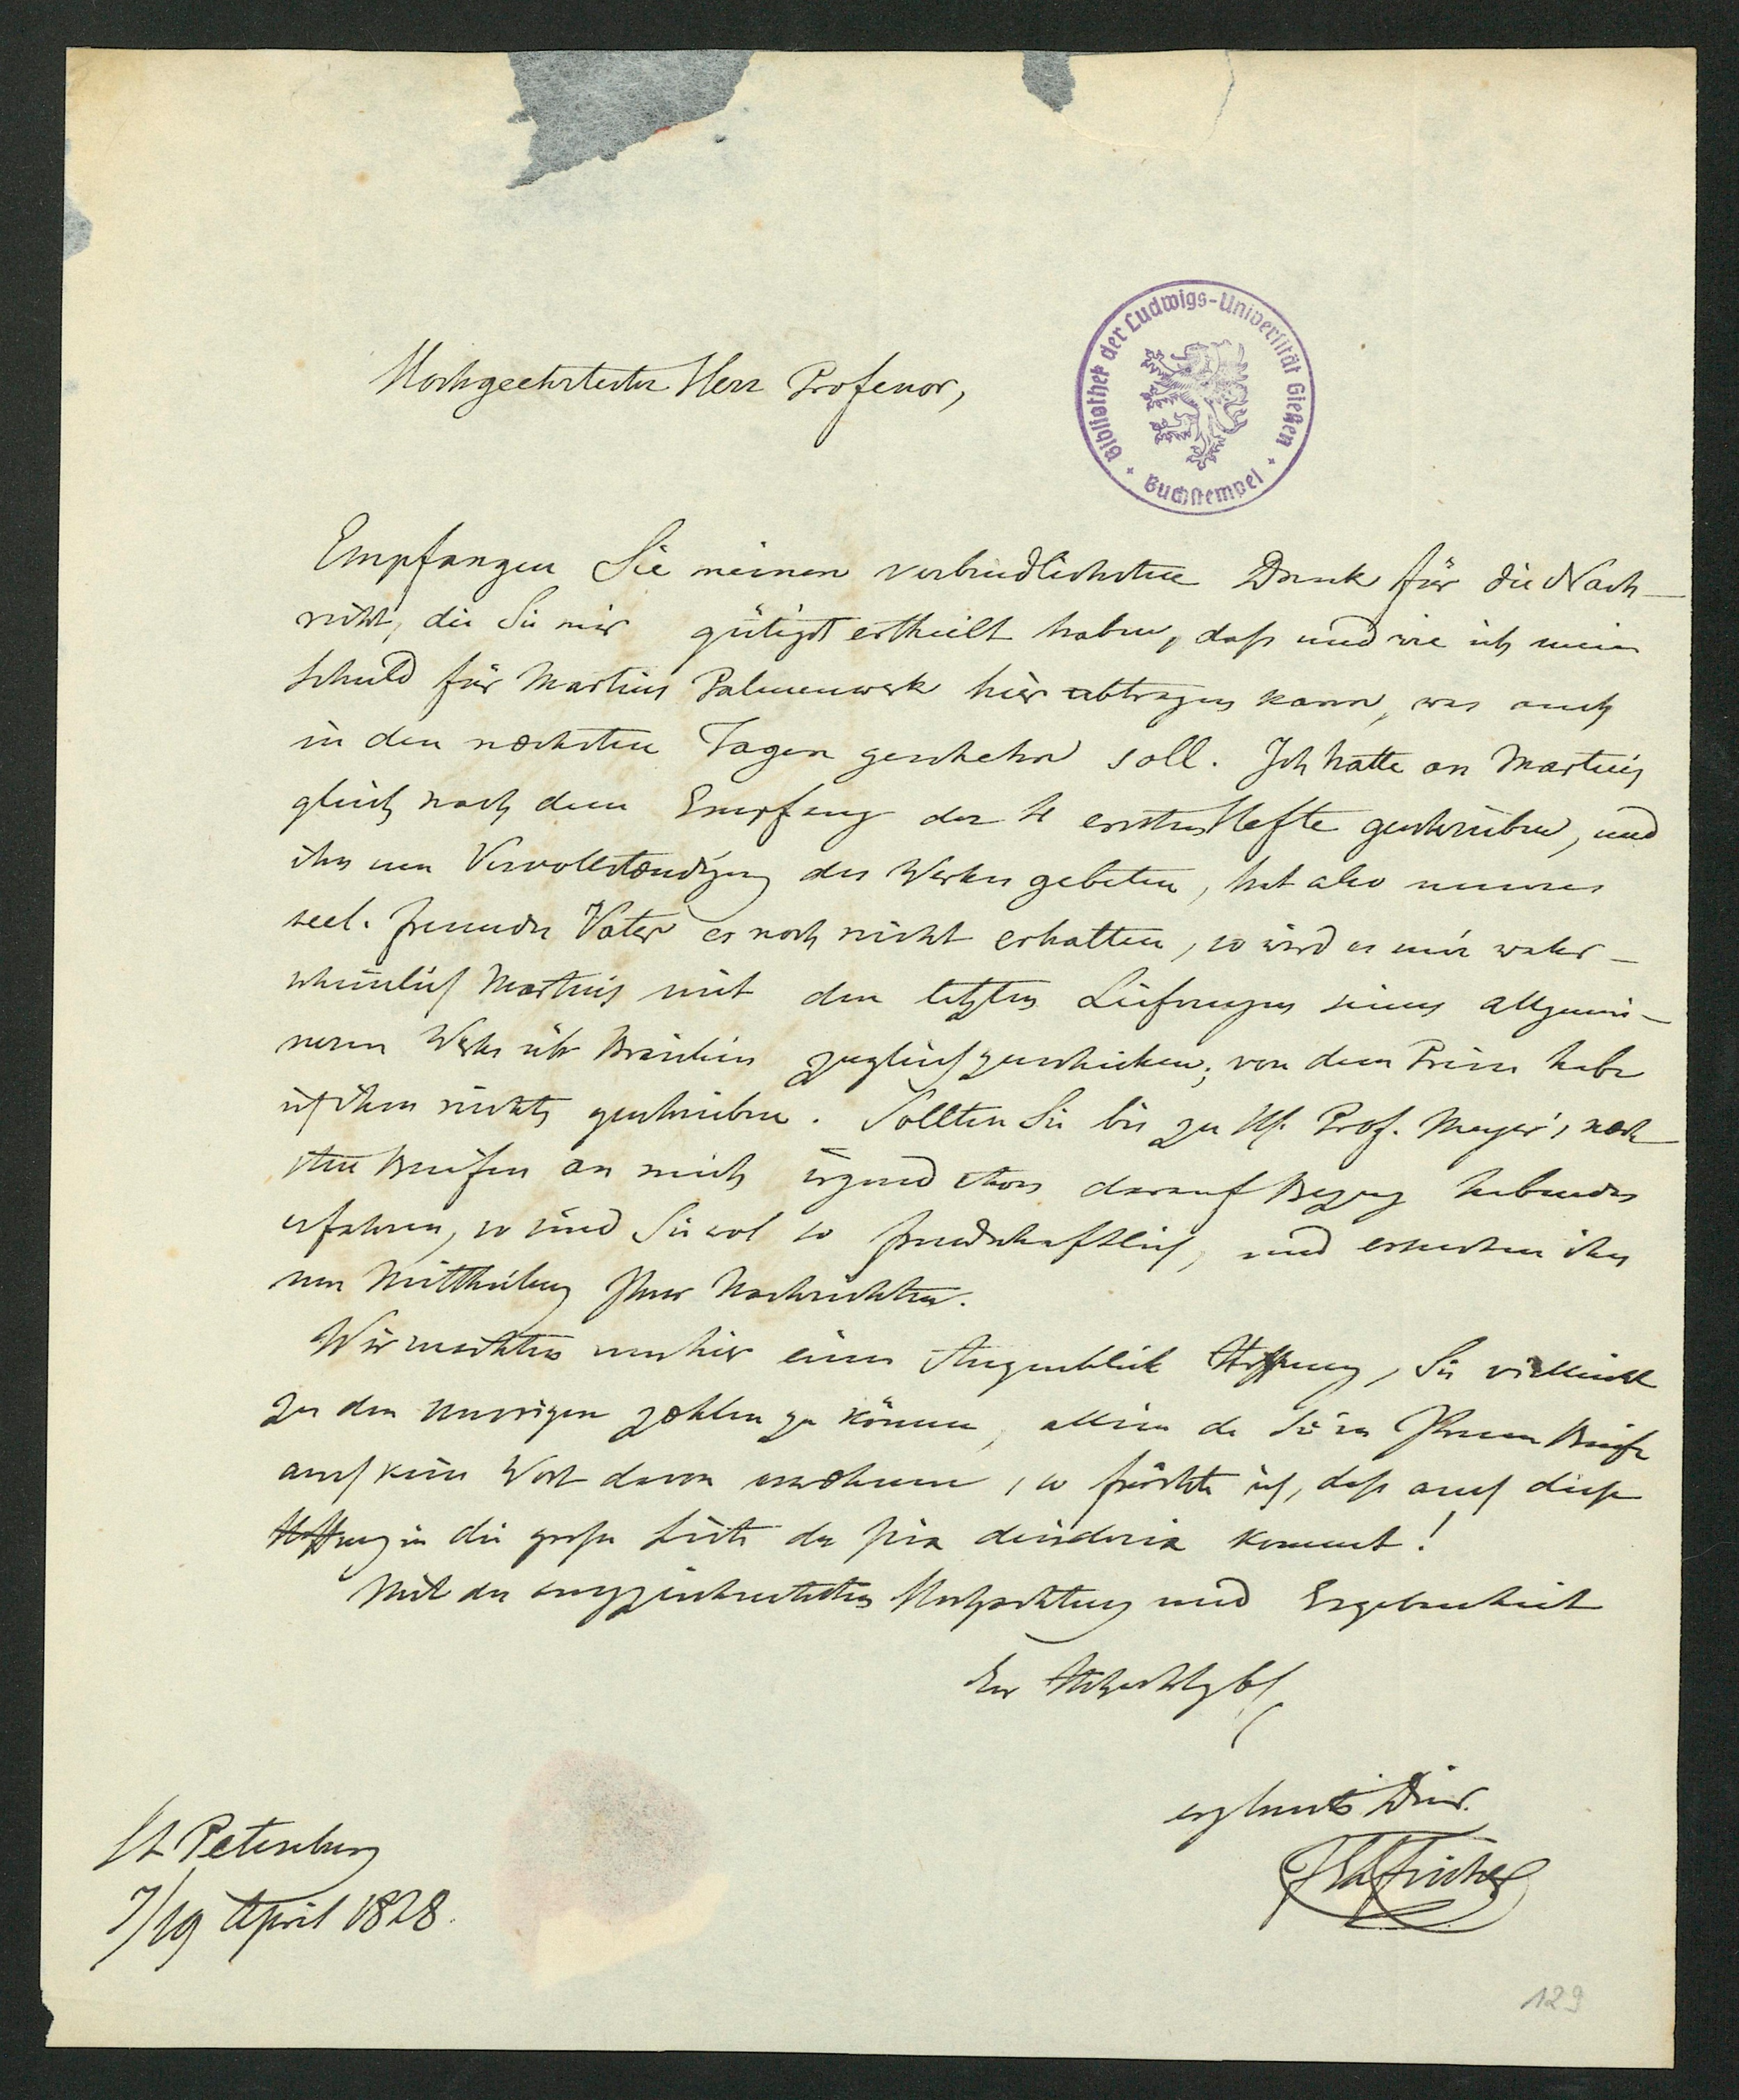 Bibliothek der Ludwigs-Universität Gießen
Buchstempel
Hochgeehrtester Herr Professor,
Empfangen Sie meinen verbindlichsten Dank für die Nach-
richt, die Sie mir gütigst ertheilt haben, daß und wie ich meine
Schuld für Martius Palmenwerk hier abtragen kann, was auch
in den nœchsten Tagen geschehn soll. Ich hatte an Martius
gleich nach dem Empfang der 4 ersten Hefte geschrieben, und
ihn um Vervollstœndigung des Werkes gebeten, hat also unseres
seel. Freundes Vater es noch nicht erhalten, so wird es mir wahr-
scheinlich Martius mit den letzten Lieferungen seines allgemei-
neren Werks übr Brasilien zugleich zuschicken; von dem Preise habe
ich ihm nichts geschrieben. Sollten Sie bis zu H. Prof. Meyer's nœch-
sten Briefen an mich irgend etwas darauf Bezug habendes
erfahren, so sind Sie wol so freundschaftlich, und ersuchen ihn
um Mittheilung Ihrer Nachrichten.
Wir machten uns hier einen Augenblick Hoffnung, Sie vielleicht
zu den Unsrigen zœhlen zu können, allein da Sie in Ihrem Briefe
auch kein Wort davon erwœhnen, so fürchte ich, daß auch diese
Hoffnung in die große Liste der pia desideria kommt!
Mit der ausgezeichnetesten Hochachtung und Ergebenheit
Ew
ergebenster Diener
Fischer
St. Petersburg
7/19 April 1828.
129